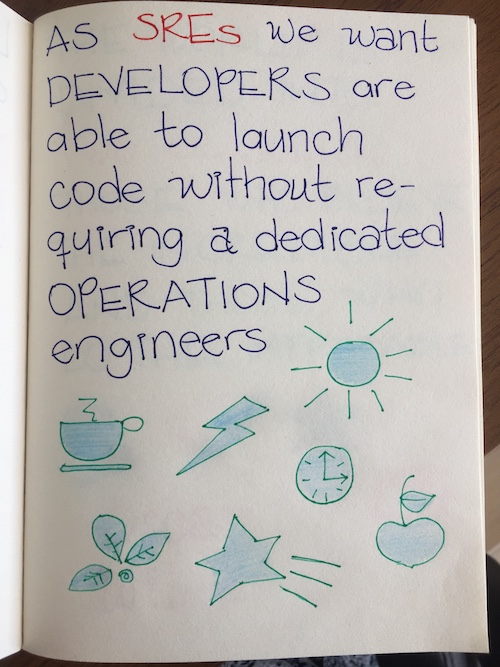 AS SREs we want
DEVELOPERS are
able to launch
code without re-
quiring a dedicated
OPERATIONS
engineers